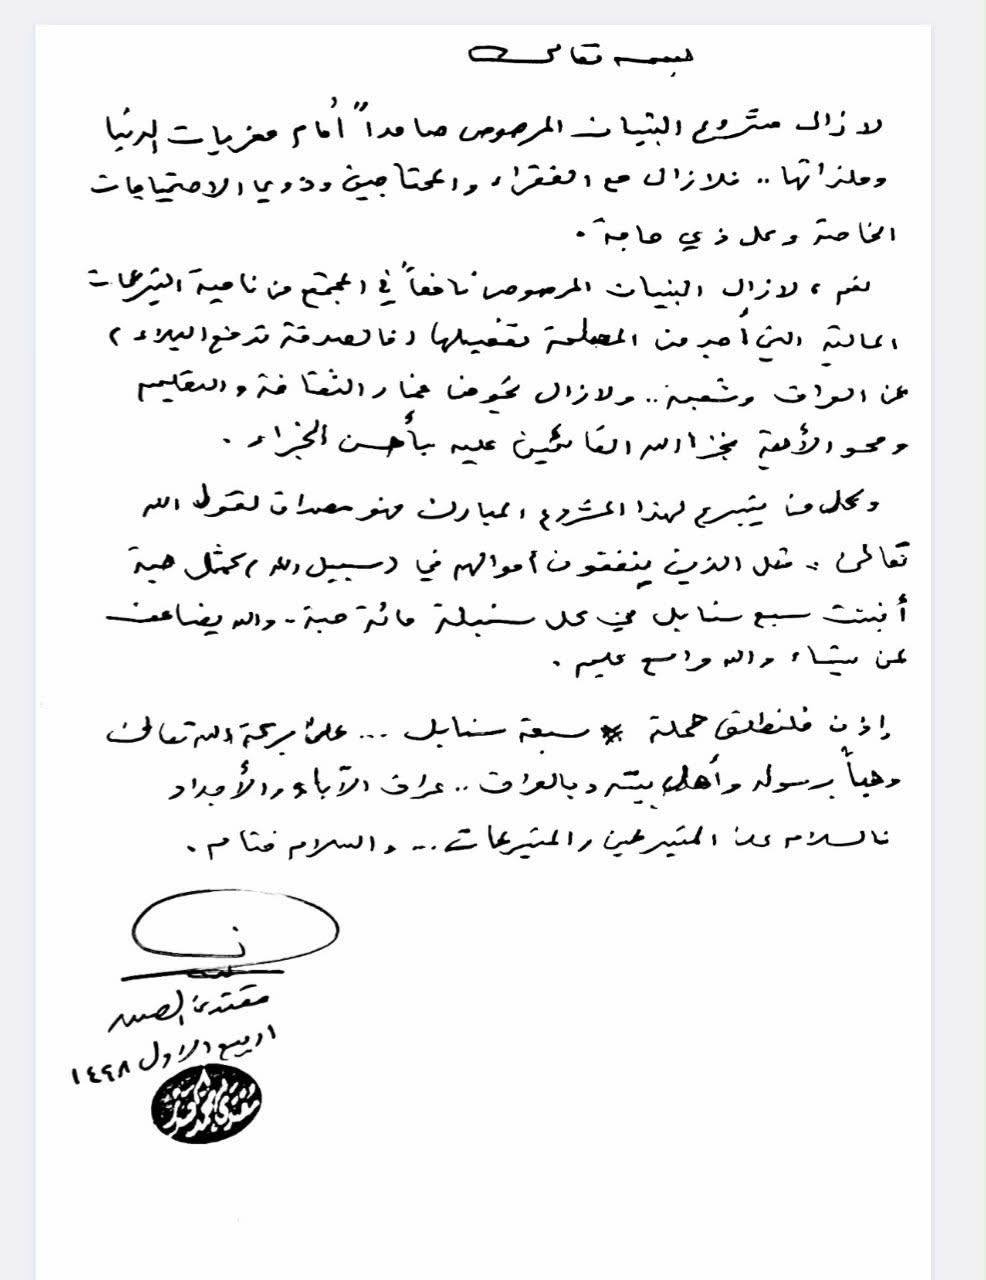 بسمه تعالى
لا زال مشروع البنيان المرصوص صامداً أمام مغريات الدنيا
وملذاتها .. فلازال مع الفقراء والمحتاجين وذوي الاحتياجات
الخاصة وكل ذي حاجة .
نعم ، لازال البنيان المرصوص نافعاً في المجتمع من ناحية التبرعات
المالية التي أجد من المصلحة تفعيلها ( فالصدقة تدفع البلاء )
عن العراق وشعبه .. ولازال يخوض غمار الثقافة والتعليم
ومحو الأمية فجزا الله القائمين عليه بأحسن الجزاء .
وكل من يتبرع لهذا المشروع المبارك فهو مصداق لقول الله
تعالى : مثل الذين ينفقون أموالهم في ( سبيل الله ) كمثل حبة
أنبتت سبع سنابل في كل سنبلة مائة حبة - والله يضاعف
لمن يشاء والله واسع عليم .
إذن فلنطلق حملة سبعة سنابل ... على بركة الله تعالى
وحباً برسوله وأهل بيته وبالعراق .. عراق الآباء والأجداد
فالسلام على المتبرعين والمتبرعات ... والسلام ختام .
مقتدى الصدر
١ ربيع الاول ١٤٤٨